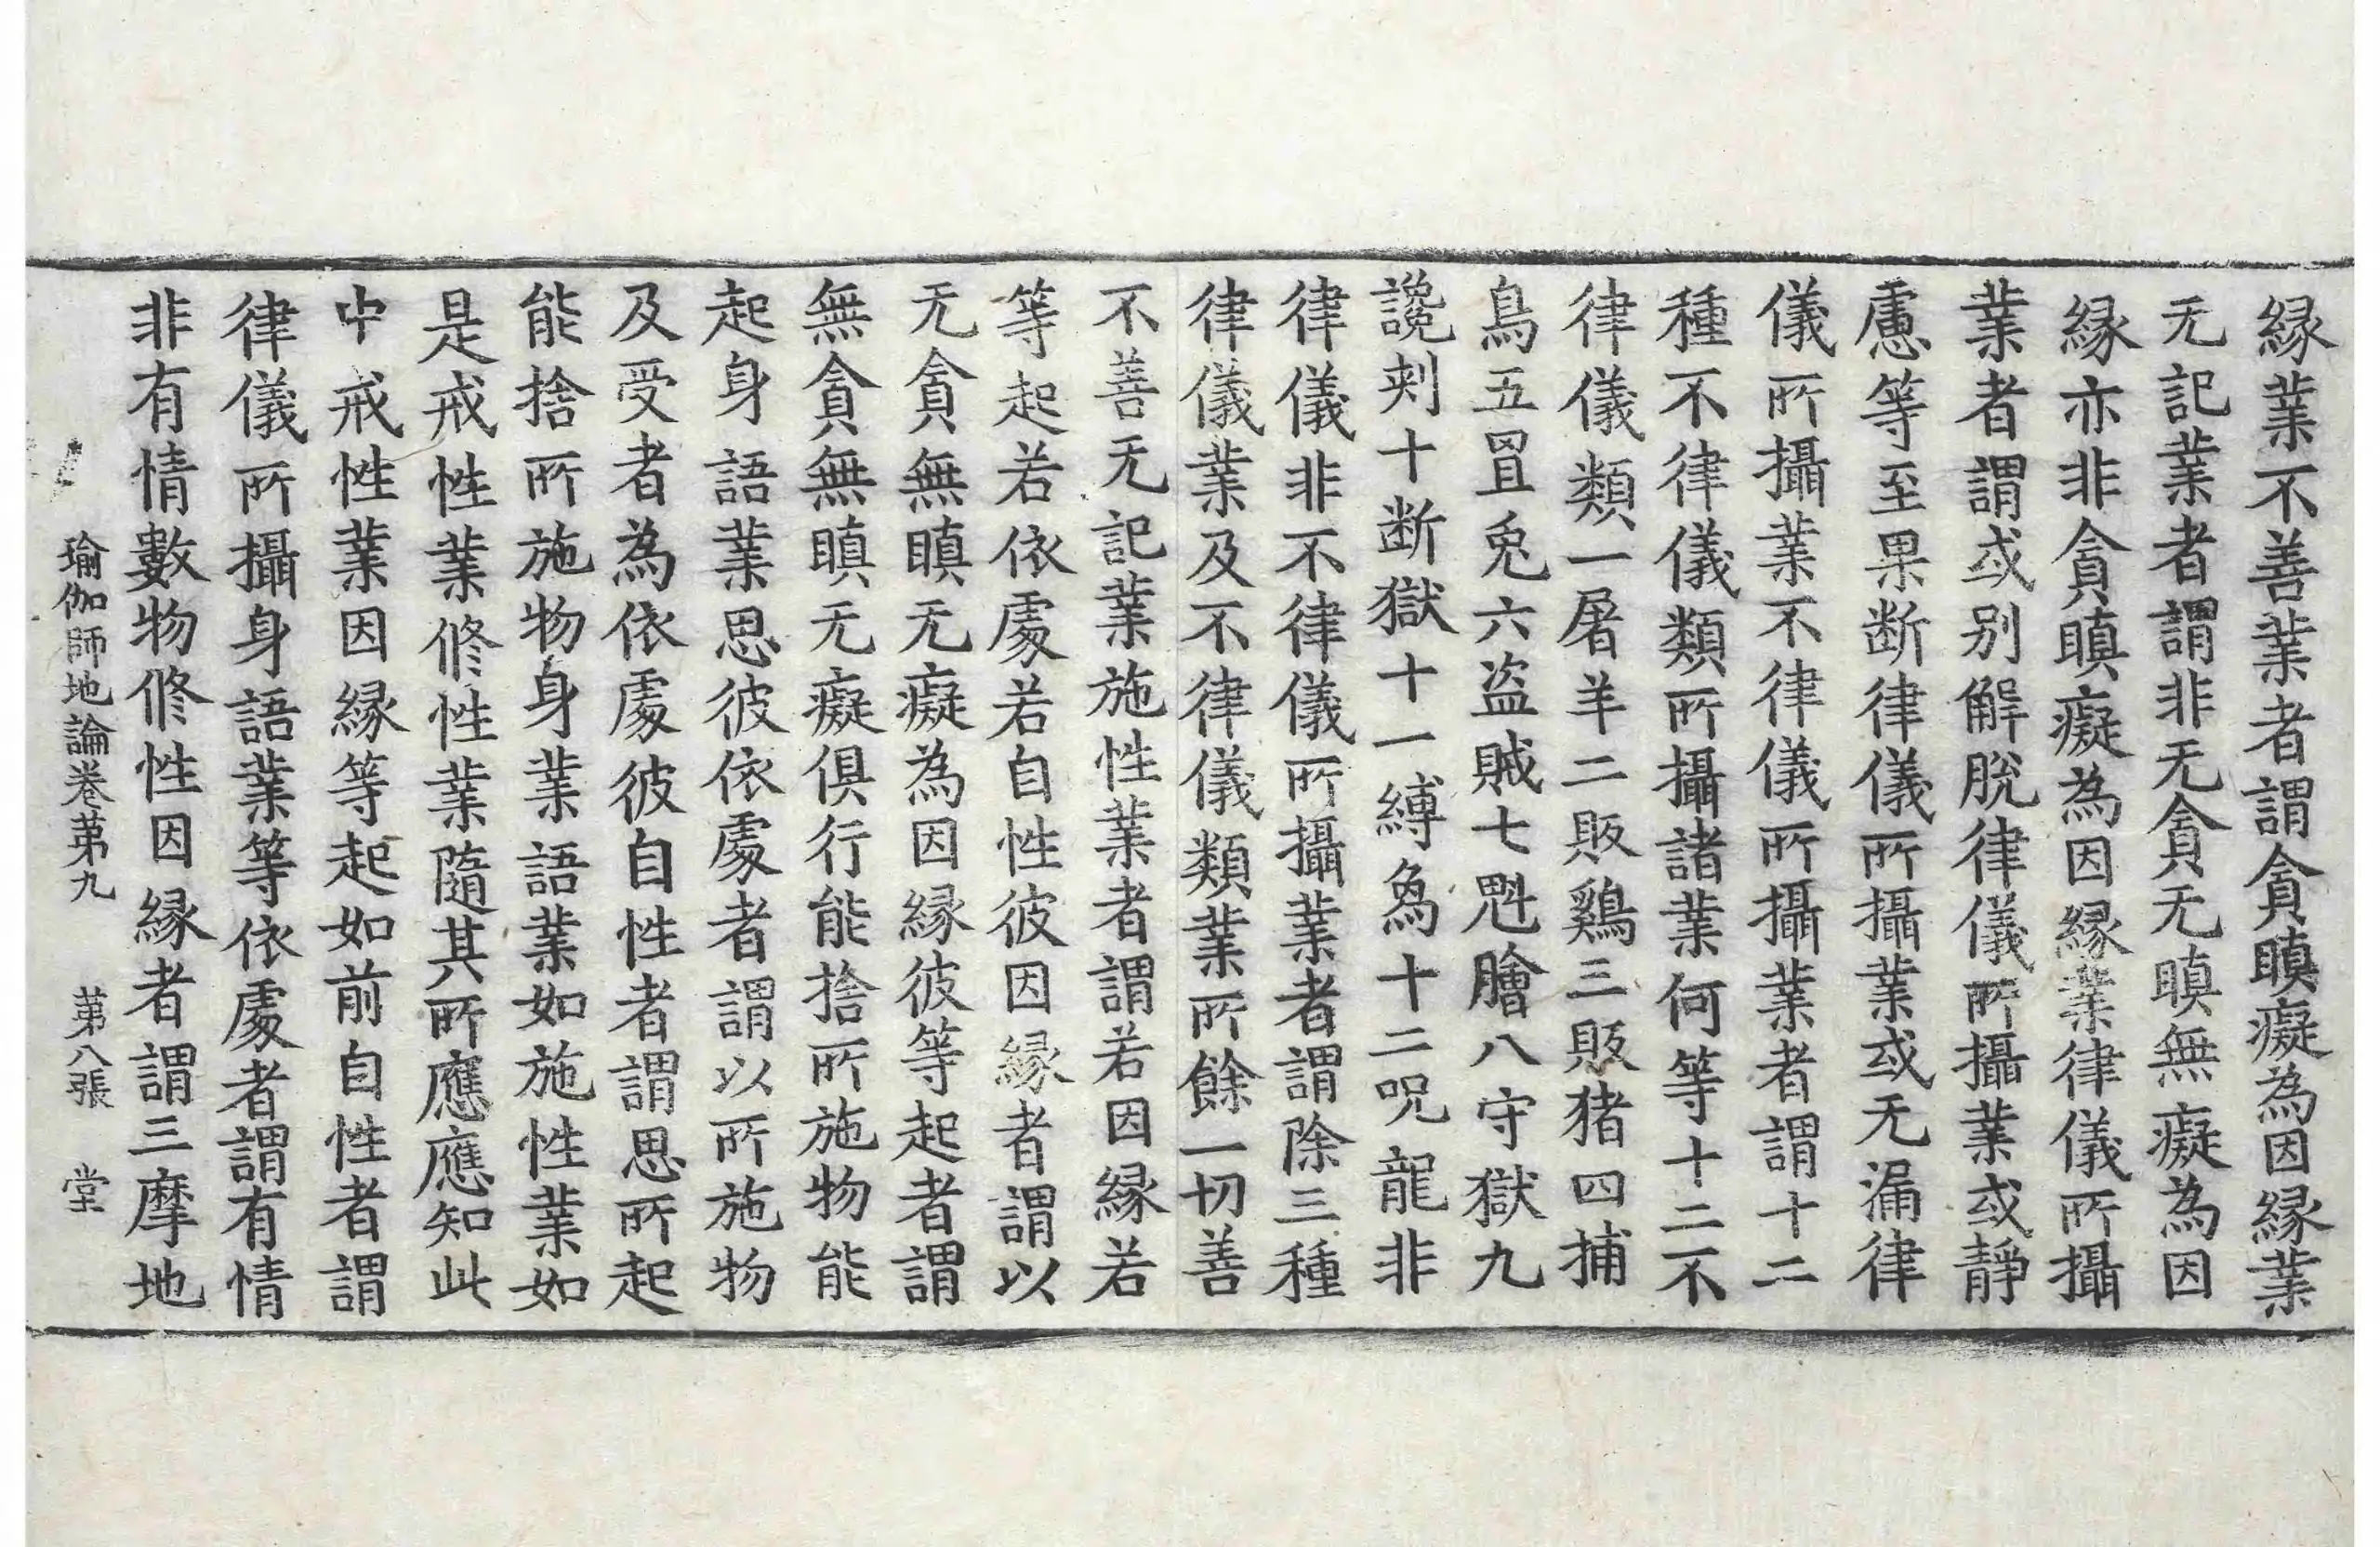 縁業不善業者謂貪瞋癡為因縁業
无記業者謂非无貪无瞋無癡為因
縁亦非貪瞋癡為因縁業律儀所攝
業者謂或别解脫律儀所攝業或靜
慮等至果断律儀所攝業或无漏律
儀所攝業不律儀所攝業者謂十二
種不律儀類所攝諸業何等十二不
律儀類一屠羊二販鷄三販猪四捕
鳥五罝兎六盗賊七魁膾八守獄九
讒刾十断獄十一縛象十二呪龍非
律儀非不律儀所攝業者謂除三種
律儀業及不律儀類業所餘一切善
不善无記業施性業者謂若因縁若
等起若依處若自性彼因縁者謂以
无貪無瞋无癡為因縁彼等起者謂
無貪無瞋无癡俱行能捨所施物能
起身語業思彼依處者謂以所施物
及受者為依處彼自性者謂思所起
能捨所施物身業語業如施性業如
是戒性業修性業隨其所應應知此
中戒性業因縁等起如前自性者謂
律儀所攝身語業等依處者謂有情
非有情數物修性因縁者謂三摩地
瑜伽師地論卷苐九 苐八張 堂